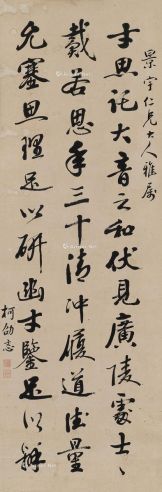 景宇仁兄大人雅属
士思託大音之和伏見廣陵處士
戴若思年三十清沖履道德量
允塞思理足以研幽才鑒足以辨
柯劭忞